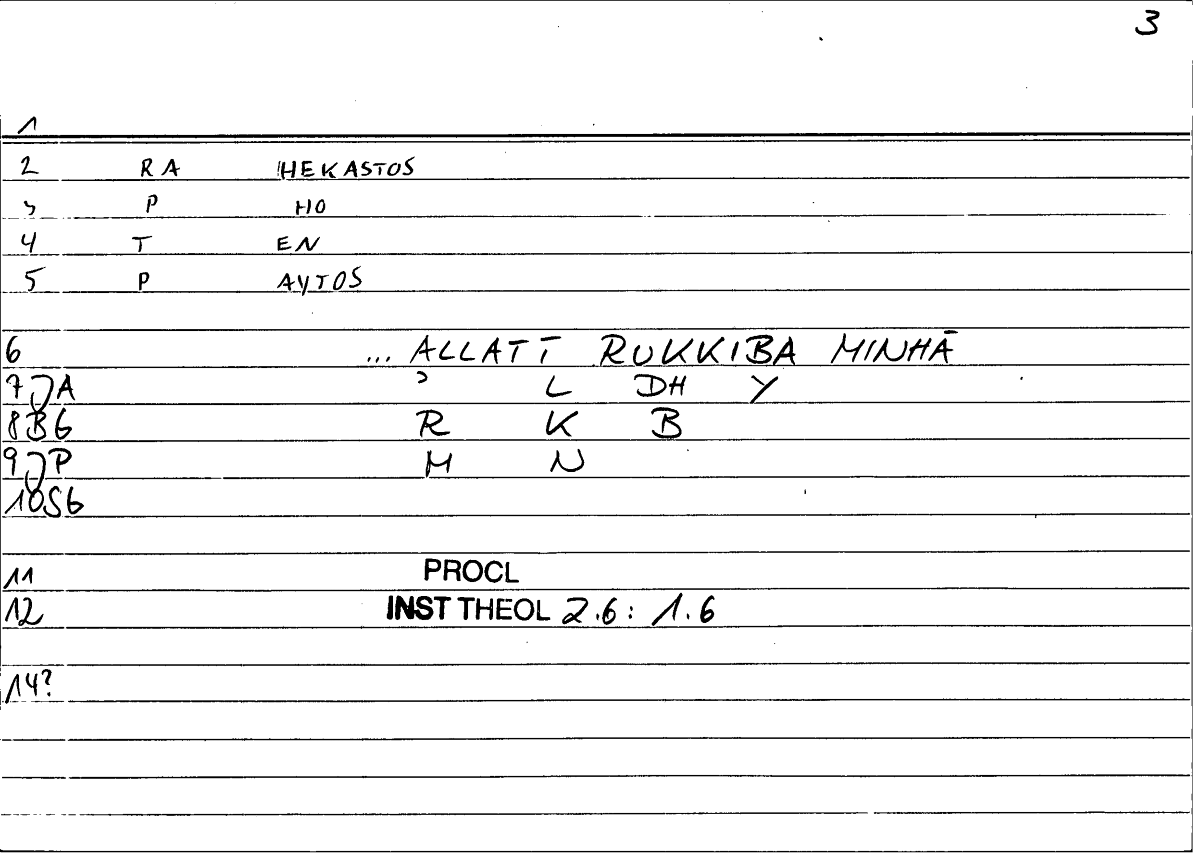 3
1
2 RA HEKASTOS
3 P HO
4 T EN
5 P AYTOS
6 ... ALLATĪ RUKKIBA MINHĀ
7 JA ʾ L DH Y
8 BG R K B
9 JP M N
10 SG
11 PROCL
12 INST THEOL 2.6: 1.6
14?